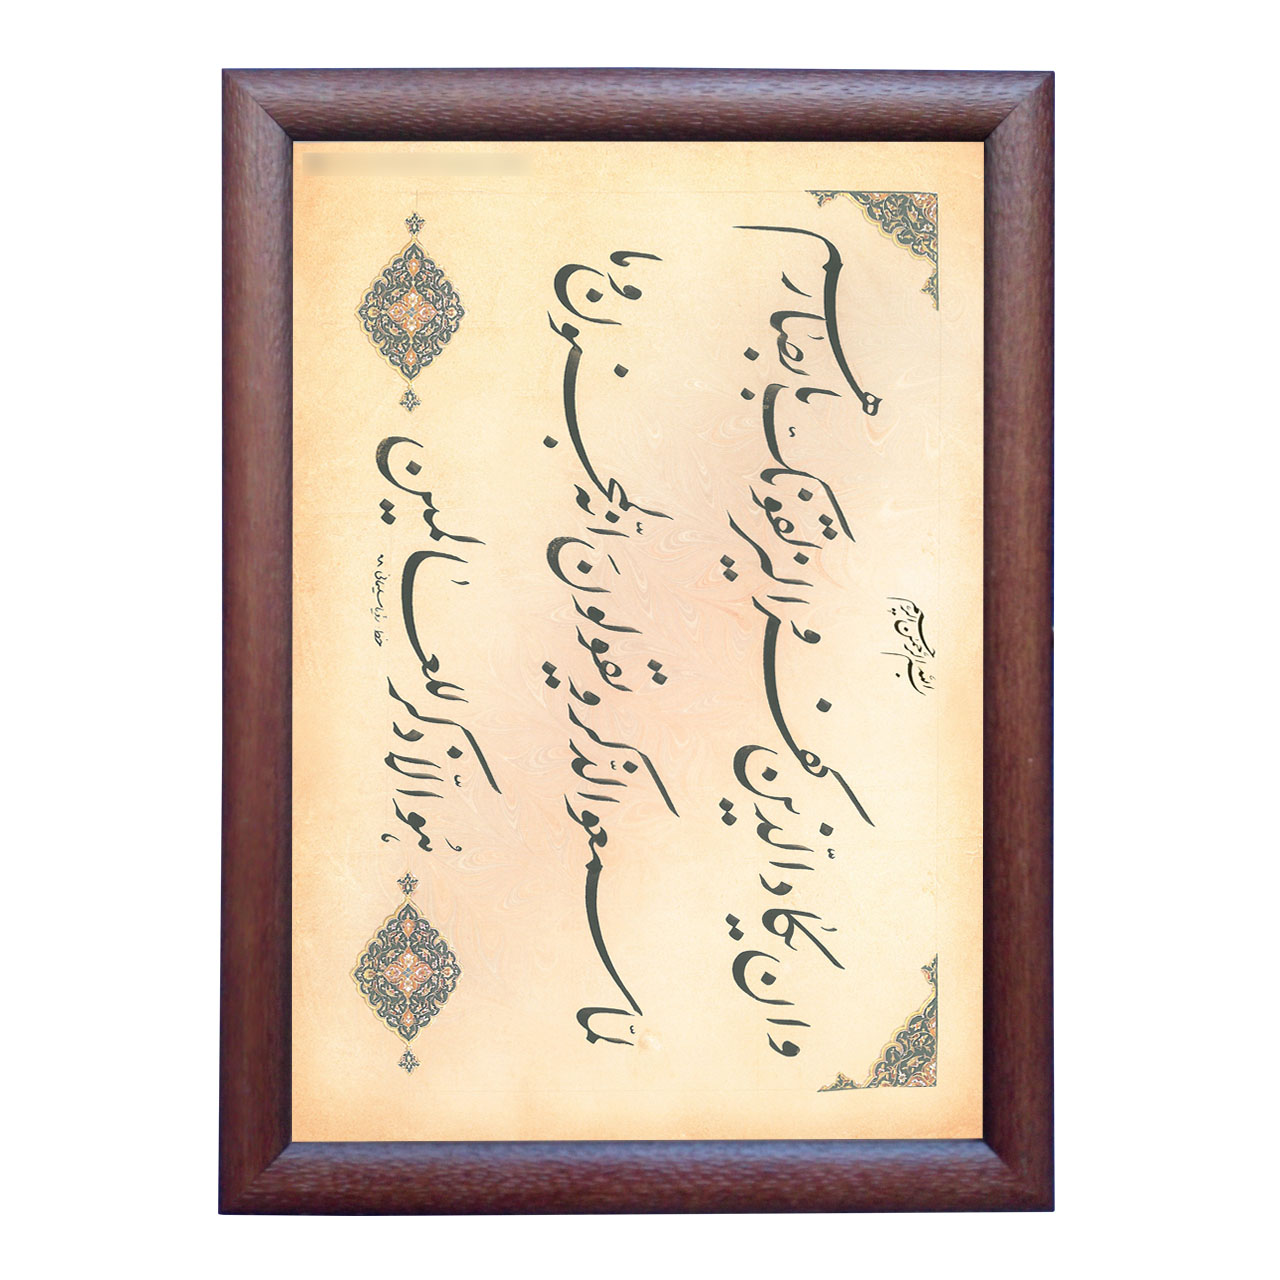 بسم الله الرحمن الرحیم
وان یکاد الّذین کفروا لیزلقونکّ بابصارهم
لمّا سمعوا الذّکر و یقولونَ انّه لمجنون و ما
هُو الّا ذکر للعالمین
خط : رؤیا سلیمانی ۹۸